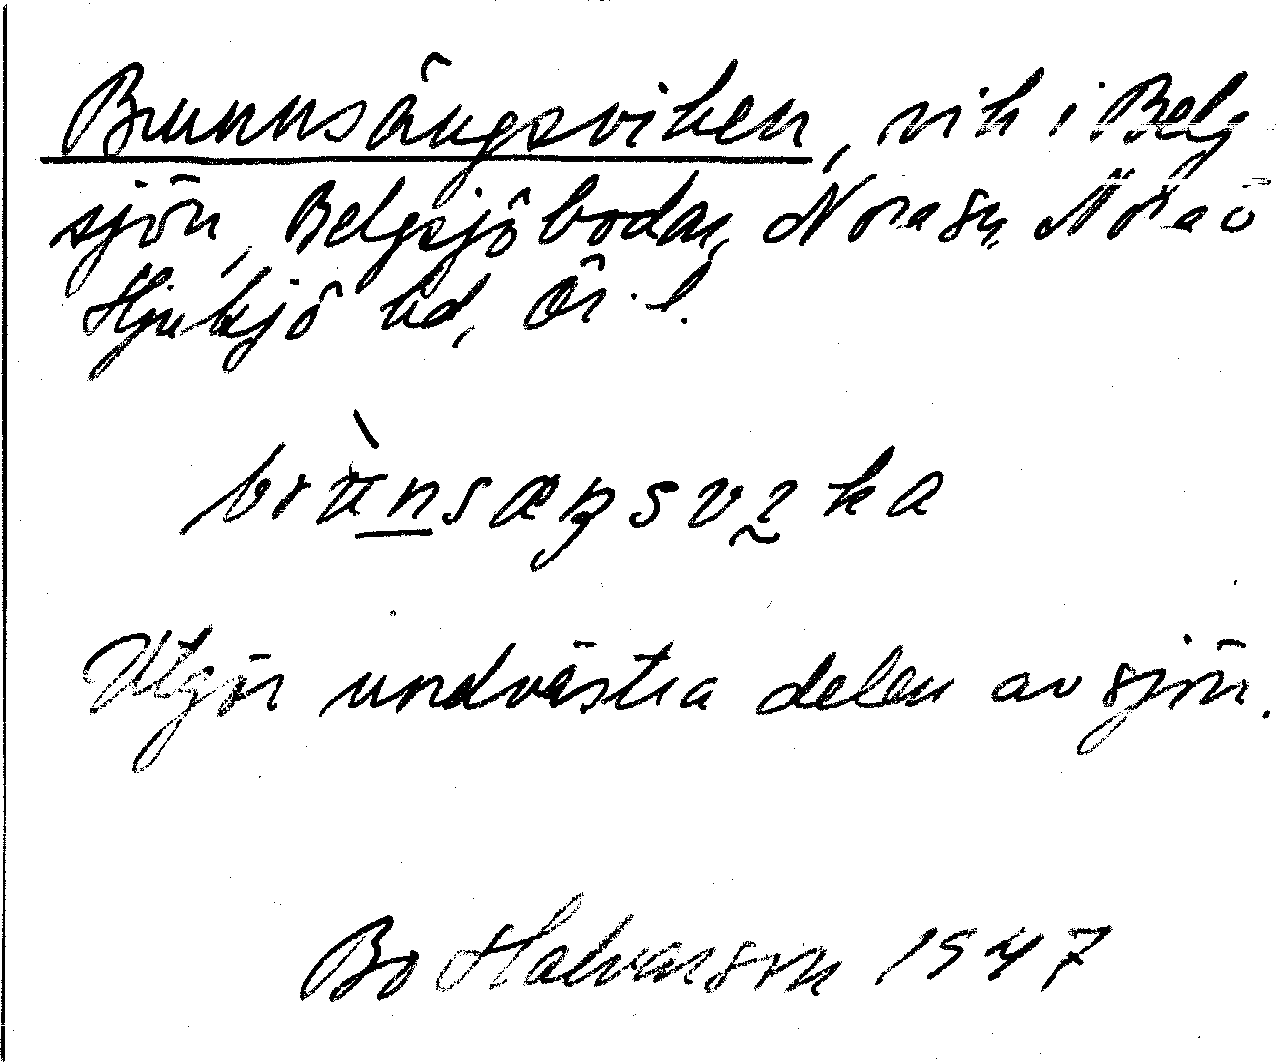 Brunnsängsviken, vik i Belg-
sjön, Belgsjöbodar, Nora sn, Nora o
Hjulsjö bd, Ör. l.
brùnsæŋsvɩka
Utgör nordvästra delen av sjön.
Bo Halvarson 1947